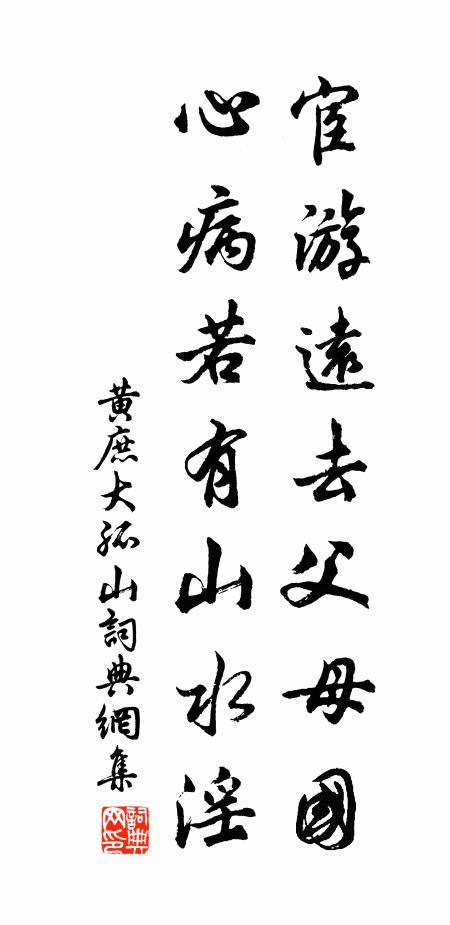 宦游遠去父母國
心病若有山水淫
黃庶大孤山詞典網集
詞典
网印